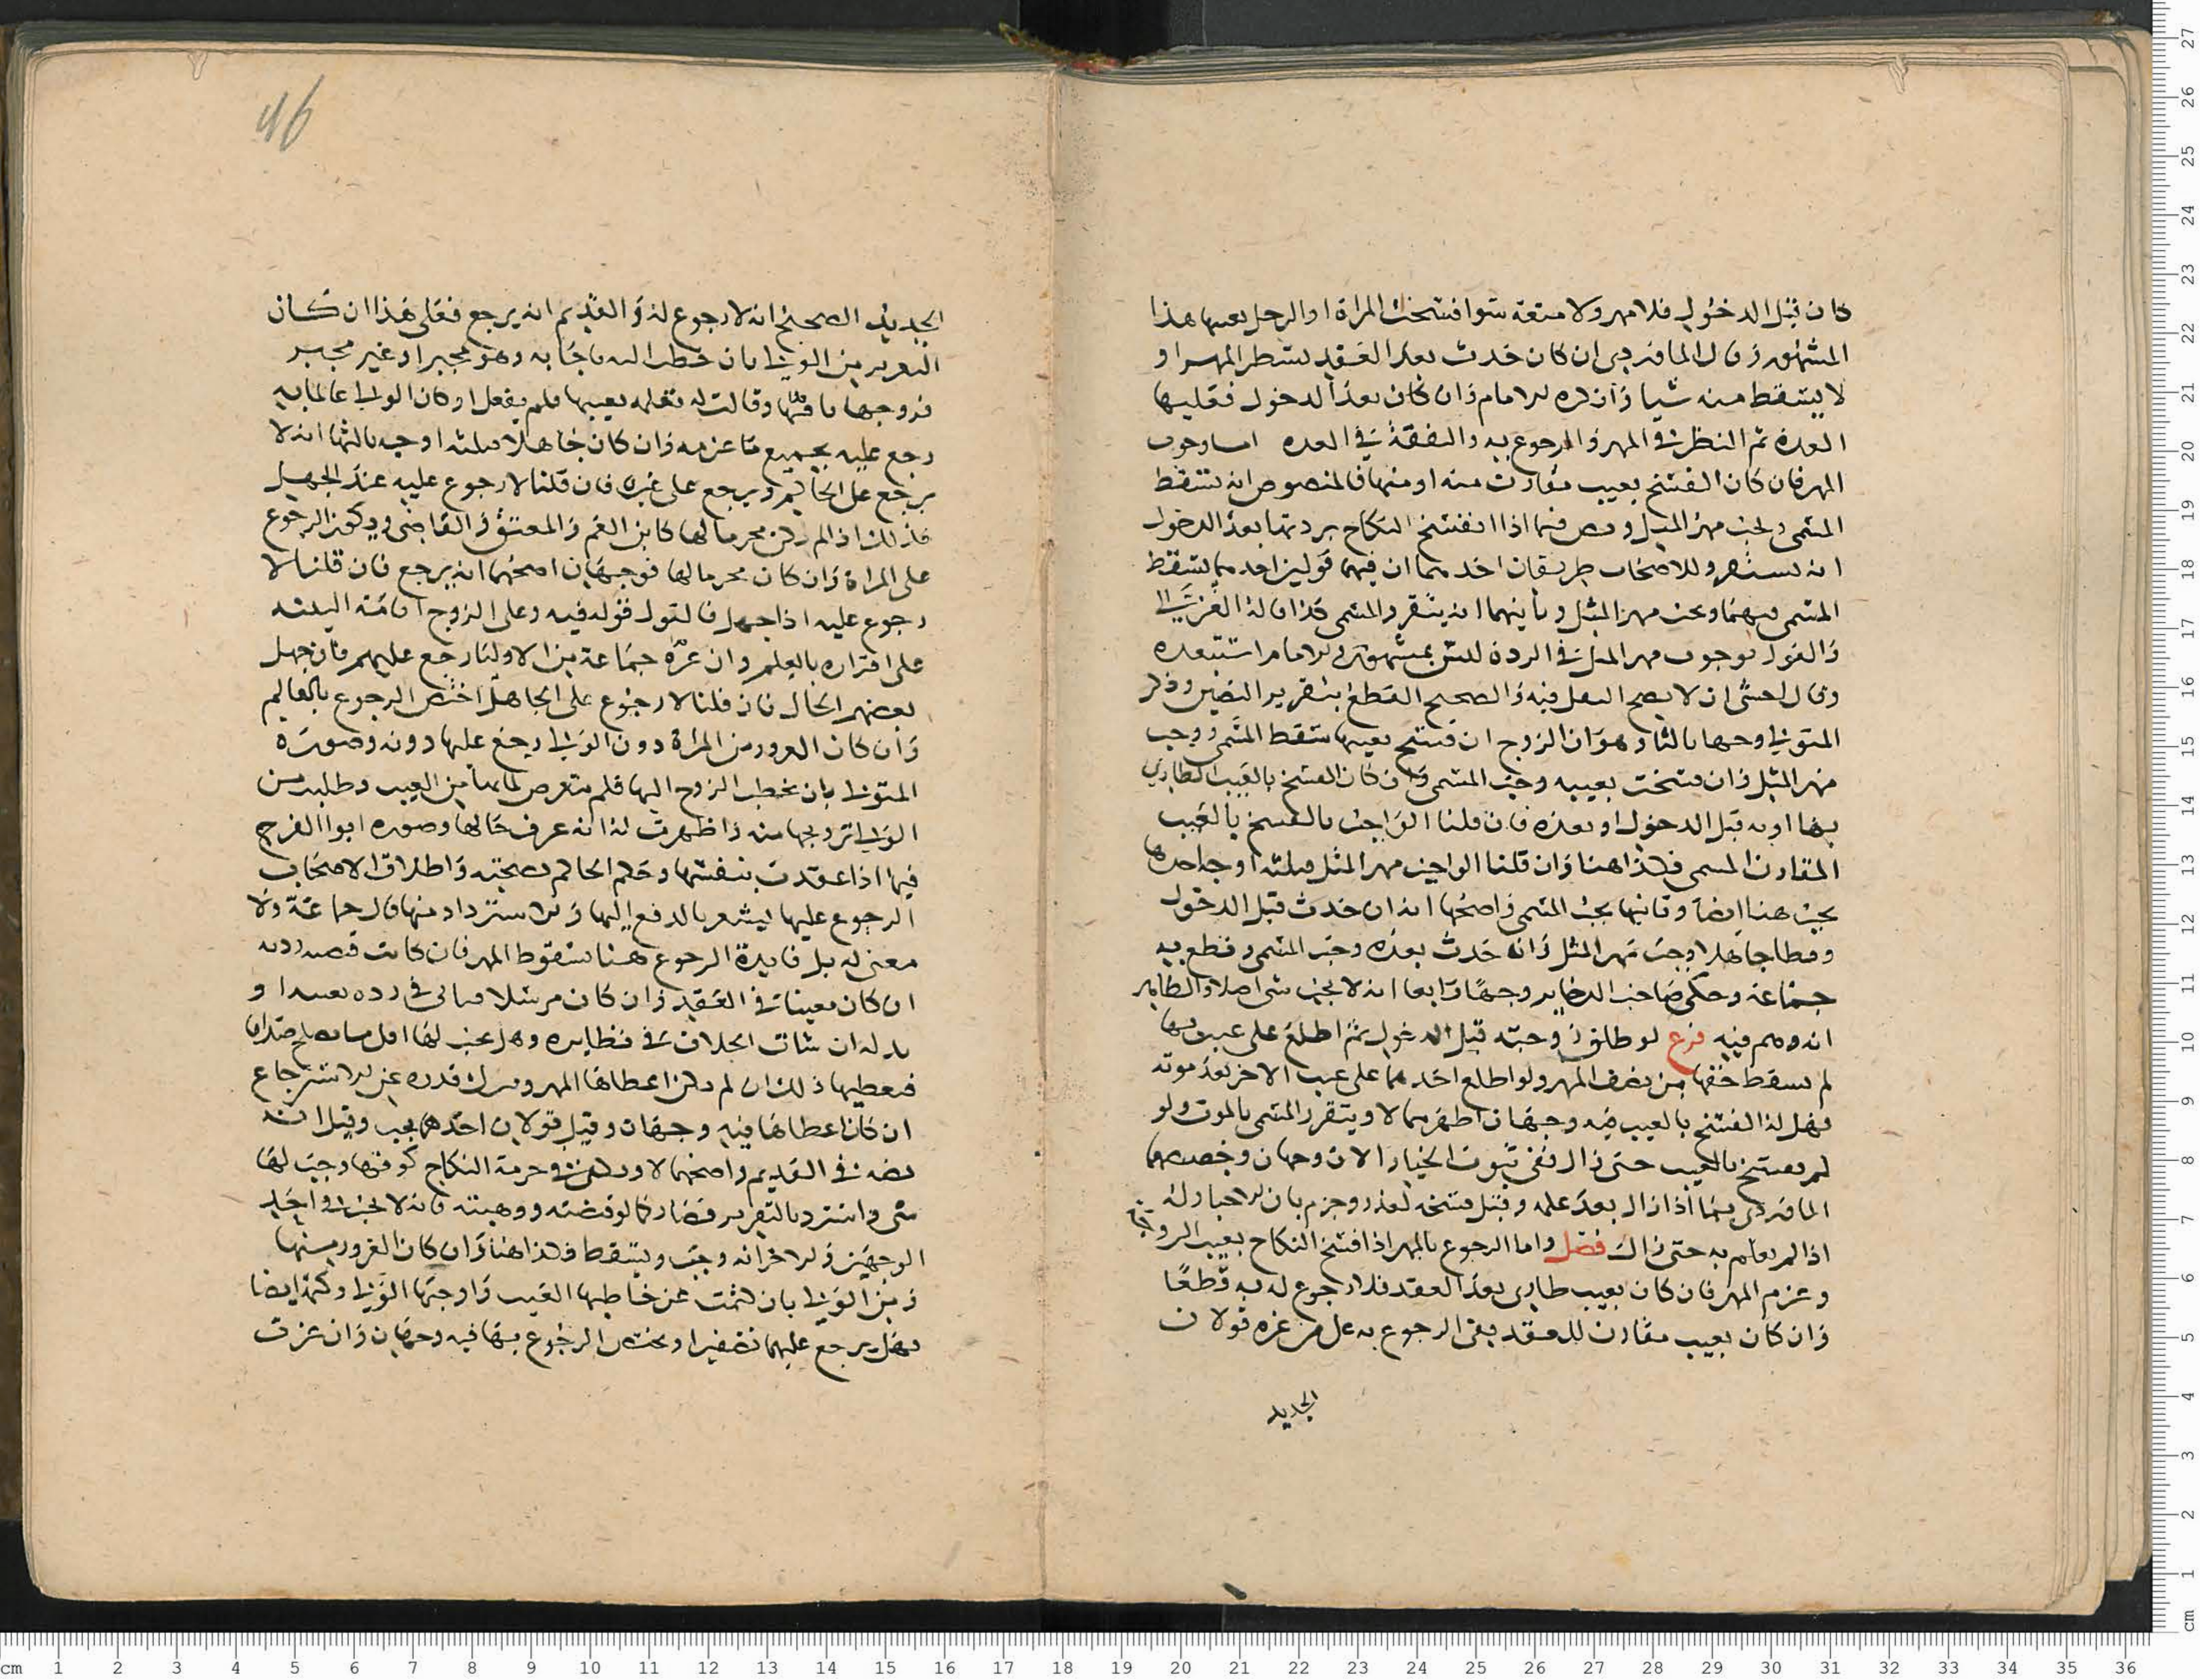 كان قبل الدخول فلا مهر ولا متعة سوا فسخت المراة او الرجل بعيبها هذا
المشهور وقال الماوردي ان كان حدث بعد العقد يشطر المهر او
لا يسقط منه شيا وان كان بعد الدخول فعليها
العدة ثم النظر في المهر والرجوع به والنفقة في العدة اما وجوب
المهر فان كان الفسخ بعيب مقارن منه او منها فالمنصوص انه يسقط
المسمى ويجب مهر المثل ونص فيما اذا انفسخ النكاح بردتها بعد الدخول
انه يستقر وللاصحاب طريقان احدهما ان فيهما قولين احدهما يسقط
المسمى فيهما ويجب مهر المثل وثانيهما انه يتقرر المسمى كذا قاله الغزالي
والقول بوجوب مهر المثل في الردة ليس بمشهور والامام استبعده
وقال اخشى ان لا يصح النقل فيه والصحيح القطع بتقرير النصين وذكر
المتولي وجها ثالثا وهو ان الزوج ان فسخ بعيبها سقط المسمى ووجب
مهر المثل وان فسخت بعيبه وجب المسمى وان كان الفسخ بالعيب الطاري
بها او به قبل الدخول او بعده فان قلنا الواجب بالفسخ بالعيب
المقارن المسمى فكذا هنا وان قلنا الواجب مهر المثل فثلثة اوجه احدها
يجب هنا ايضا وثانيها يجب المسمى واصحها انه ان حدث قبل الدخول
ووطا جاهلا وجب مهر المثل وان حدث بعده وجب المسمى وقطع به
جماعة وحكى صاحب الذخاير وجها رابعا انه لا يجب شي اصلا والظاهر
انه وهم فيه فرع لو طلق زوجته قبل الدخول ثم اطلع على عيب بها
لم يسقط حقها من نصف المهر ولو اطلع احدهما على عيب الاخر بعد موته
فهل له الفسخ بالعيب فيه وجهان اظهرهما لا ويتقرر المسمى بالموت ولو
لم يفسخ بالعيب حتى زال ففي ثبوت الخيار الان وجهان وخصصهما
الماوردي بما اذا زال بعد علمه وقبل فسخه لعذر وجزم بان لا خيار له
اذا لم يعلم به حتى زال فصل واما الرجوع بالمهر اذا فسخ النكاح بعيب الزوجة
وغرم المهر فان كان بعيب طاري بعد العقد فلا رجوع له به قطعا
وان كان بعيب مقارن للعقد بقي الرجوع به على من غره قولان
الجديد
46
الجديد الصحيح انه لا رجوع له والقديم انه يرجع فعلى هذا ان كان
التغرير من الولي بان خطب اليه فاجابه وهو مجبر او غير مجبر
فزوجها باذنها وقالت له تعلمه بعيبها فلم يفعل او كان الولي عالما به
رجع عليه بجميع ما غرمه وان كان جاهلا فثلثة اوجه ثالثها انه لا
يرجع على الحاكم ويرجع على غيره فان قلنا لا رجوع عليه عند الجهل
فذلك اذا لم يكن محرما لها كابن العم والمعتق والقاضي ويكون الرجوع
على المراة وان كان محرما لها فوجهان اصحهما انه يرجع فان قلنا لا
رجوع عليه اذا جهل فالقول قوله فيه وعلى الزوج اقامة البينة
على اقراره بالعلم وان غره جماعة من الاوليا رجع عليهم فان جهل
بعضهم الحال فان قلنا لا رجوع على الجاهل اختص الرجوع بالعالم
وان كان الغرور من المراة دون الولي رجع عليها دونه وصوره
المتولي بان يخطب الزوج اليها فلم تتعرض لما بها من العيب وطلبت من
الولي تزويجها منه واظهرت له انه عرف حالها وصوره ابو الفرج
فيما اذا عقدت بنفسها وحكم الحاكم بصحته واطلاق الاصحاب
الرجوع عليها يشعر بالدفع اليها والاسترداد منها قال جماعة ولا
معنى له بل فايدة الرجوع هنا سقوط المهر فان كانت قبضته ردته
ان كان معينا في العقد وان كان مرسلا في رده بعينه او
بدله ان شات الخلاف في نظايره وهل يجب لها اقل ما يصلح صداقا
فيعطيها ذلك ان لم يكن اعطاها المهر ويترك قدره عن الاسترجاع
ان كان اعطاها فيه وجهان وقيل قولان احدهما يجب وقيل انه
نصه في القديم واصحهما لا ويكفي في حرمة النكاح كونها وجب لها
شي واسترد بالتغرير فصار كما لو قبضته ووهبته فانه لا يجب في احد
الوجهين والاخر انه وجب ويسقط فكذا هنا وان كان الغرور منها
ومن الولي بان كتمت عن خاطبها العيب وزوجها الولي وكتم ايضا
فهل يرجع عليهما نصفين او يختص الرجوع بها فيه وجهان وان غرت